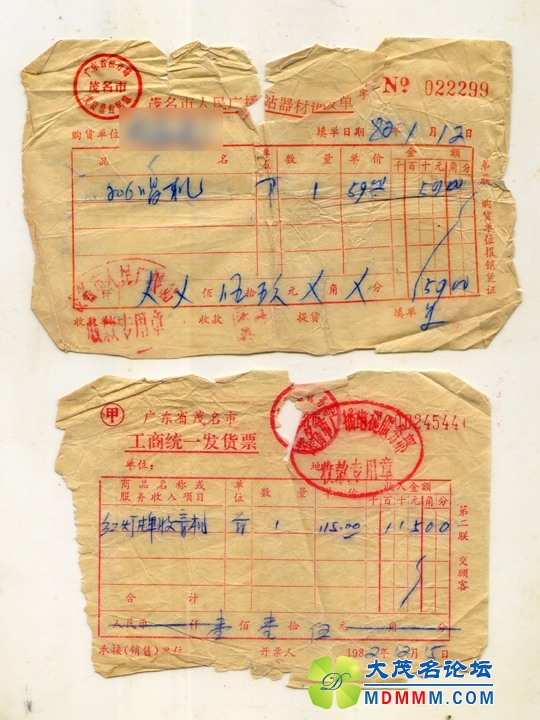 广东省税务局
茂名市
茂名市人民广播站器材调拨单
No 022299
购货单位
填单日期 82年1月12日
品 名 单位 数量 单价 金额
千百十元角分
206唱机 个 1 59.00 59.00
第一联 购货单位报销凭证
佰 伍拾玖元 角 分 59.00
收款专用章
收款 提货 填单
甲 广东省茂名市
工商统一发货票
0024544
单位:
地
收款专用章
商品名称或服务收入项目 单位 数量 单价 收入金额
千百十元角分
红灯牌收音机 台 1 115.00 11500
第二联 交顾客
合计
人民币 仟 壹佰壹拾伍元 角 分
承接(销售)单位 开票人 1982年12月15日
大茂名论坛
MDMMM.COM